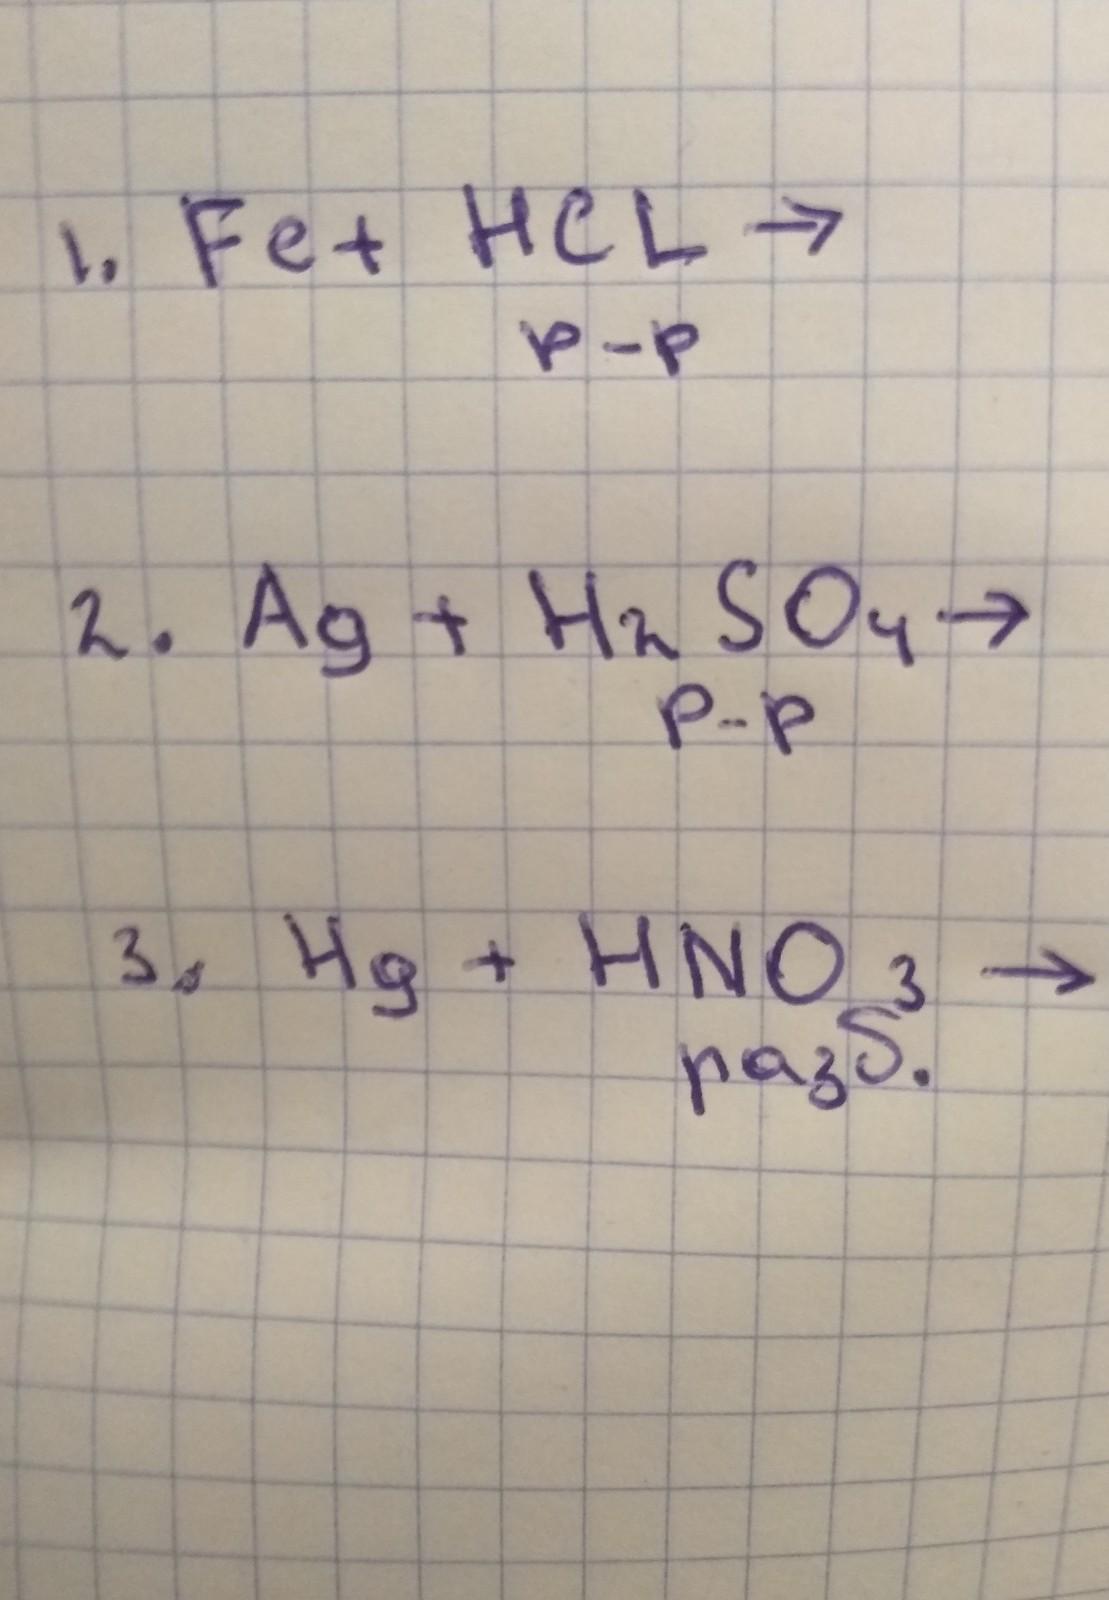 1. Fe + HCL →
р-р
2. Ag + H₂SO₄ →
р-р
3. Hg + HNO₃ →
разб.